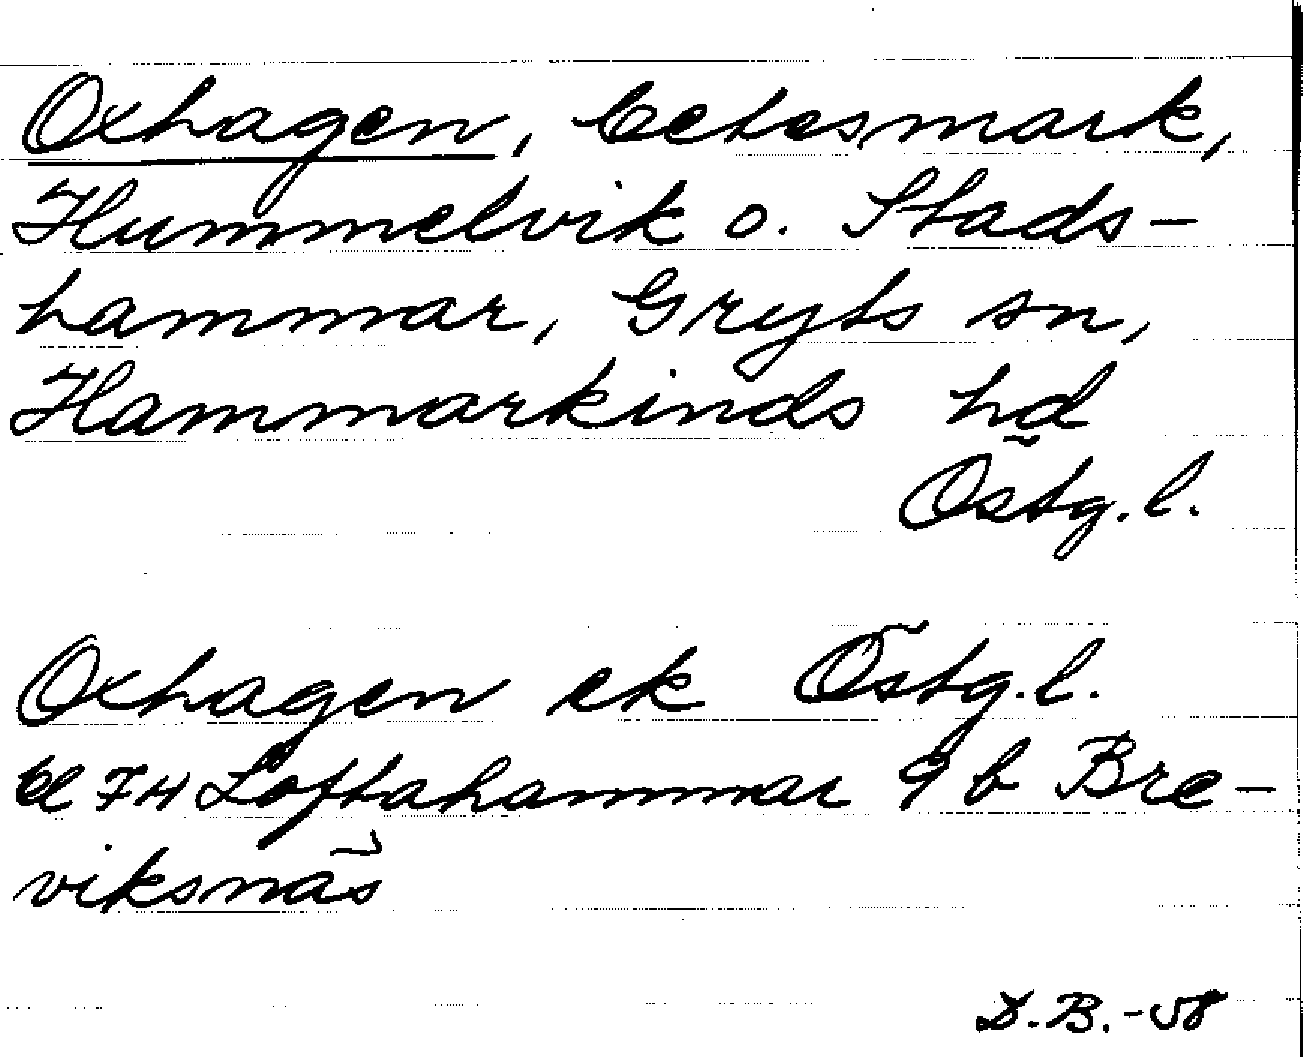 Oxhagen, betesmark,
Hummelvik o. Stads-
hammar, Gryts sn,
Hammarkinds hd
Östg.l.
Oxhagen ek Östg.l.
bl 74 Loftahammar 9 b Bre-
viksnäs
D.B.-58